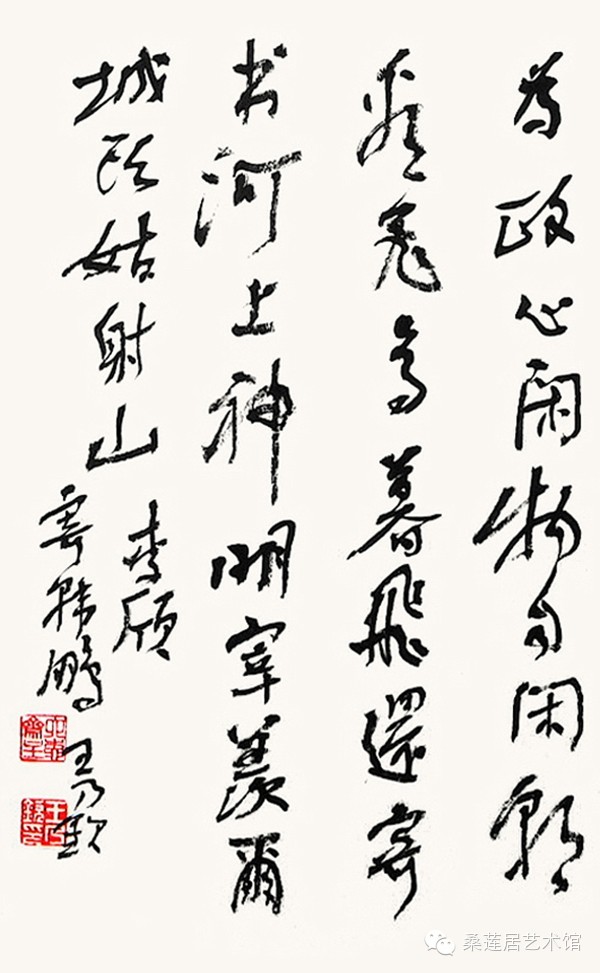 為政心閑物自閑朝
看飛鳥暮飛還寄
书河上神明宰羨爾
城頭姑射山
李頎
寄韓鵬
王乃欽
王乃欽印
桑莲居艺术馆